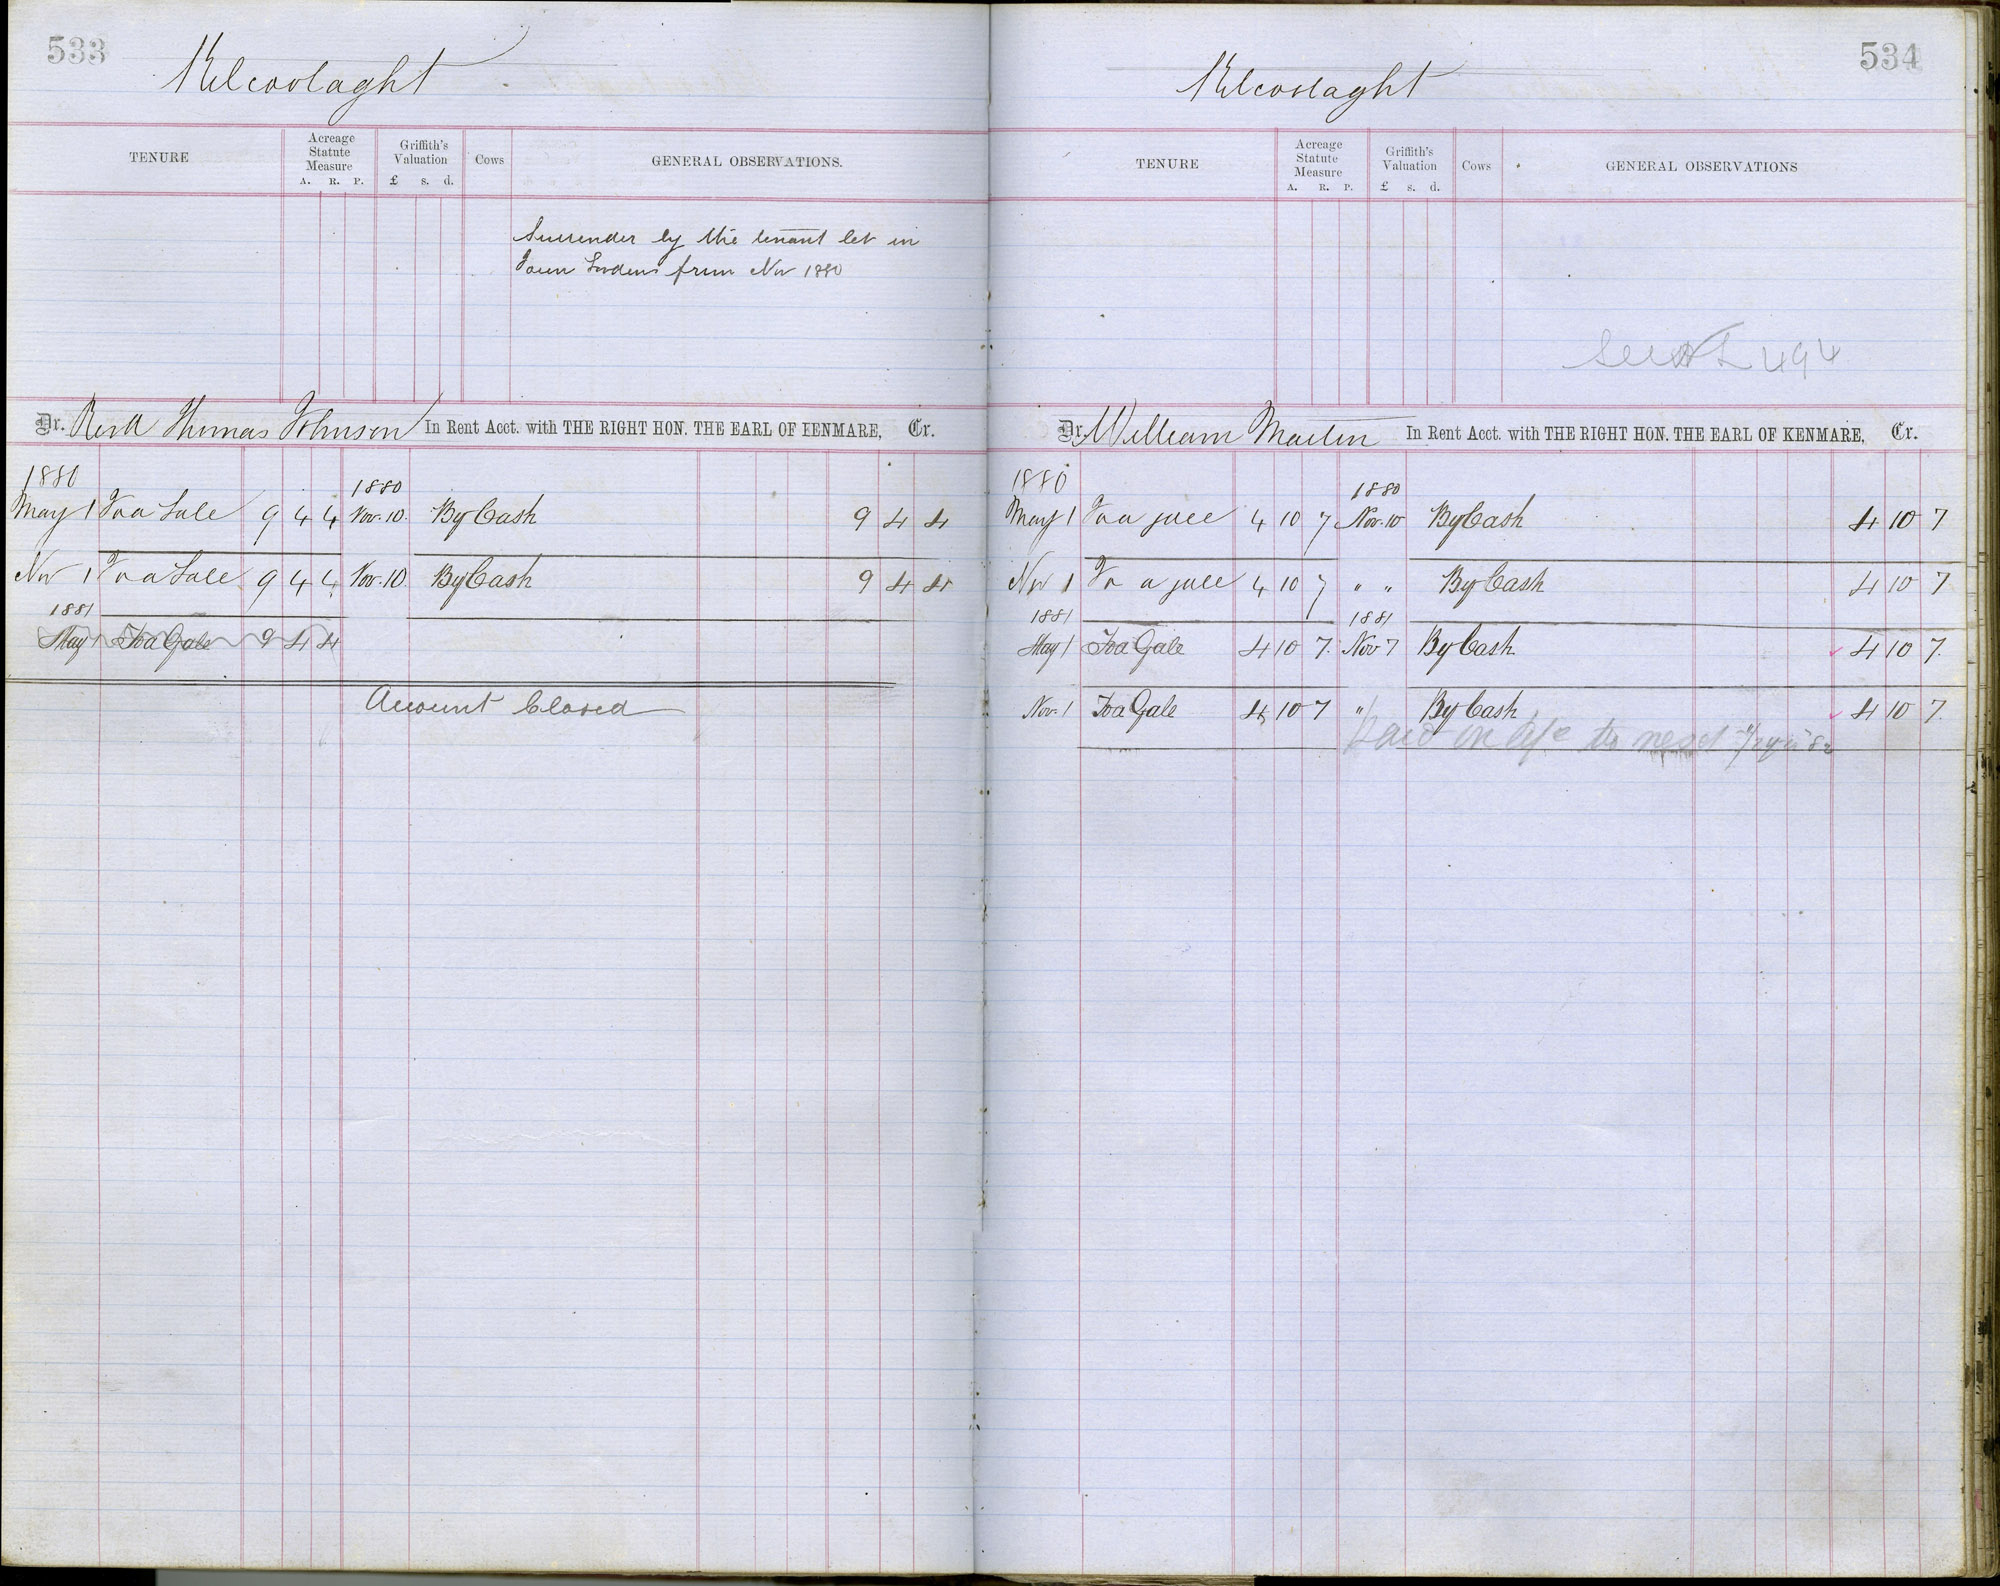 533
Kilcoolaght
TENURE
Acreage Statute Measure
A. R. P.
Griffith's Valuation
£ s. d.
Cows
GENERAL OBSERVATIONS.
Surrender by the tenant let in
Town from Nov 1880
Dr. Revd Thomas Johnson In Rent Acct. with THE RIGHT HON. THE EARL OF KENMARE, Cr.
1880 1880
May 1 To a Gale 9 4 4 Nov. 10. By Cash 9 4 4
Nov 1 To a Gale 9 4 4 Nov. 10 By Cash 9 4 4
1881
May 1 To a Gale 9 4 4
Account Closed
534
Kilcoolaght
TENURE
Acreage Statute Measure
A. R. P.
Griffith's Valuation
£ s. d.
Cows
GENERAL OBSERVATIONS
494
Dr. William Martin In Rent Acct. with THE RIGHT HON. THE EARL OF KENMARE, Cr.
1880 1880
May 1 To a gale 4 10 7 Nov. 10 By Cash 4 10 7
Nov 1 To a gale 4 10 7 " " By Cash 4 10 7
1881 1881
May 1 To a Gale 4 10 7 Nov 7 By Cash 4 10 7.
Nov. 1 To a Gale 4 10 7 " By Cash 4 10 7.
Paid in